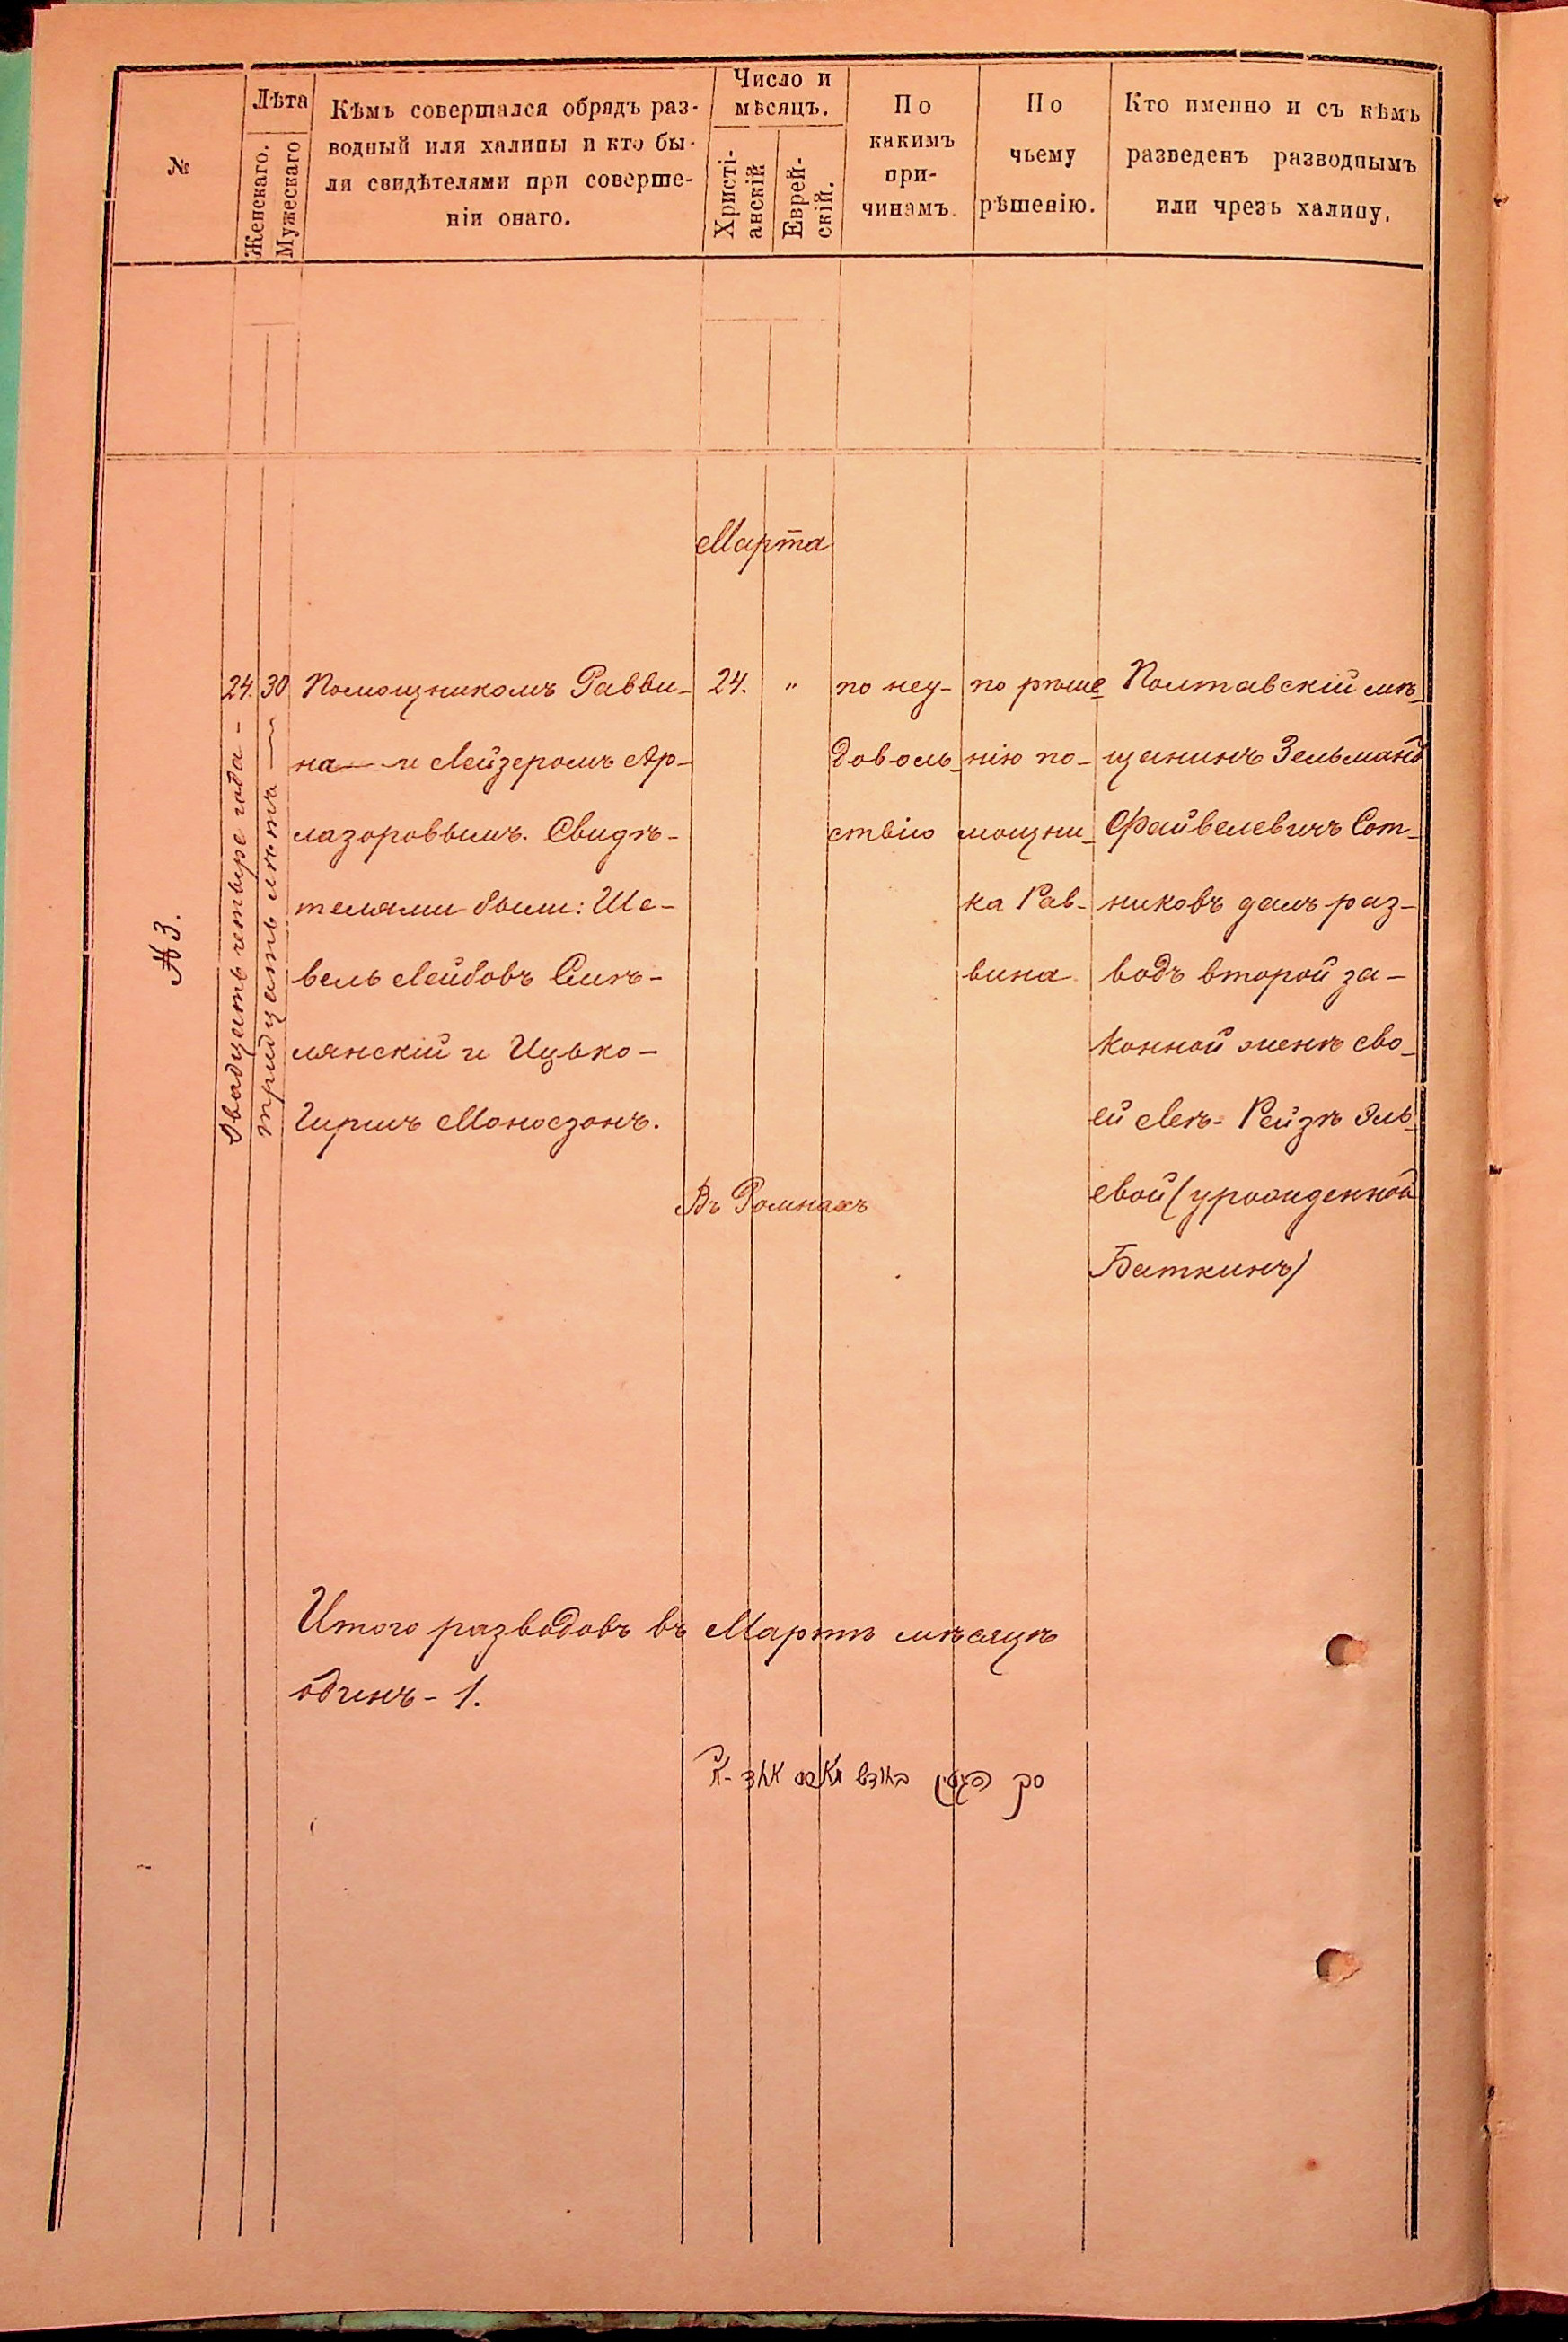 №
Лѣта
Женскаго.
Мужескаго
Кѣмъ совершался обрядъ раз-
водный или халицы и кто бы-
ли свидѣтелями при соверше-
ніи онаго.
Число и
мѣсяцъ.
Христі-
анскій
Еврей-
скій.
По
какимъ
при-
чинамъ.
По
чьему
рѣшенію.
Кто именно и съ кѣмъ
разведенъ разводнымъ
или чрезъ халицу.
Марта
№ 3.
24.
Двадцать четыре года -
30
тридцать лѣтъ —
Помощникомъ Равви-
на — и Лейзеромъ Ар-
лазоровымъ. Свидѣ-
телями были: Ше-
вель Лейбовъ Смѣ-
лянскій и Ицько-
Гиршъ Моносзонъ.
24.
"
Въ Ромнахъ
по неу-
доволь-
ствію
по рѣше-
нію по-
мощни-
ка Рав-
вина
Полтавскій мѣ-
щанинъ Зельманъ
Файвелевичъ Сот-
никовъ далъ раз-
водъ второй за-
конной женѣ сво-
ей Леѣ-Рейзѣ Эль-
евой (урожденной
Баткинъ)
Итого разводовъ въ Мартѣ мѣсяцѣ
одинъ - 1.
סך הגטין בחודש מארט אחד - א